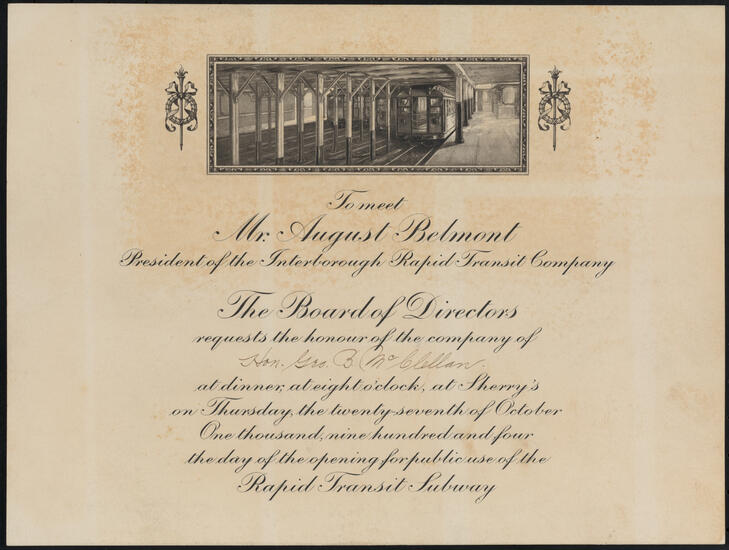 To meet
Mr. August Belmont
President of the Interborough Rapid Transit Company
The Board of Directors
requests the honour of the company of
Hon. Geo. B. McClellan.
at dinner, at eight o'clock, at Sherry's
on Thursday, the twenty-seventh of October
One thousand, nine hundred and four
the day of the opening for public use of the
Rapid Transit Subway